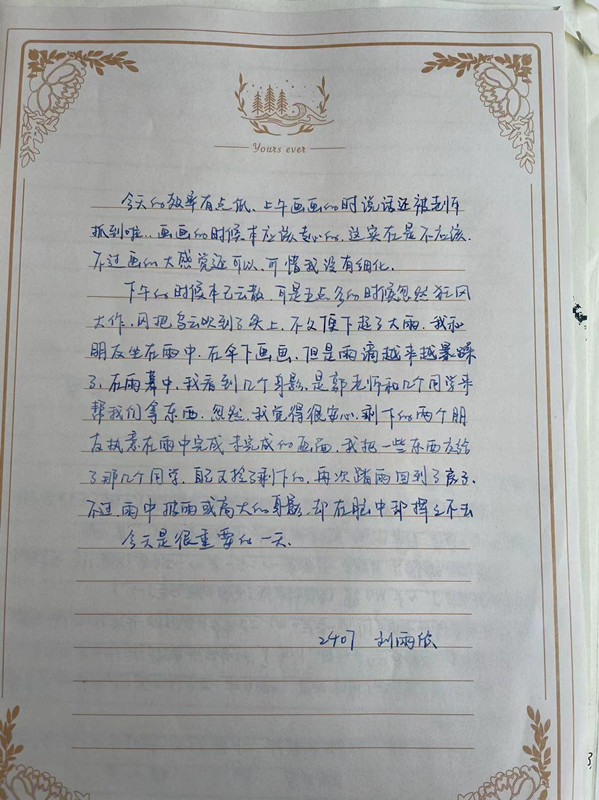 Yours ever
今天的效率有点低、上午画画的时说话还被老师
抓到啦.. 画画的时候本应该专心的, 这实在是不应该.
不过画的大感觉还可以, 可惜我没有细化.
下午的时候本已云散, 可是五点多的时候忽然狂风
大作, 风把乌云吹到了头上, 不久便下起了大雨. 我和
朋友坐在雨中. 在伞下画画, 但是雨滴越来越暴躁
了, 在雨幕中, 我看到几个身影, 是郭老师和几个同学来
帮我们拿东西. 忽然, 我觉得很安心. 剩下的两个朋
友执意在雨中完成未完成的画面, 我把一些东西交给
了那几个同学, 自己又捡了剩下的, 再次踏雨回到了房子.
不过, 雨中 高大的身影, 却在脑中却挥之不去
今天是很重要的一天.
2407 刘雨欣
3,